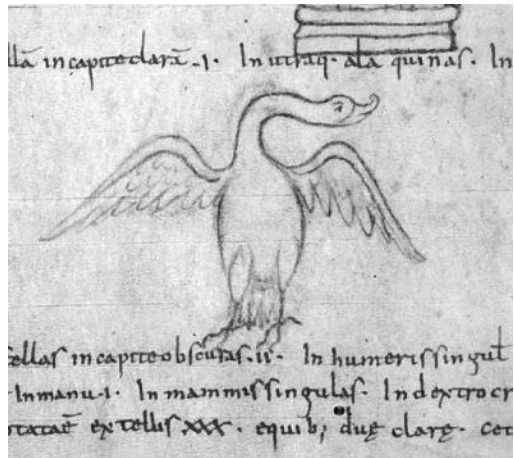 llā in capite clarā .ı. In utraq· ala quinas. In
tellas in capite obscuras .ıı. In humeris singul
In manu .ı. In mammis singulas. In dextro cr
stellis xxx. equib; duę clarę. cet